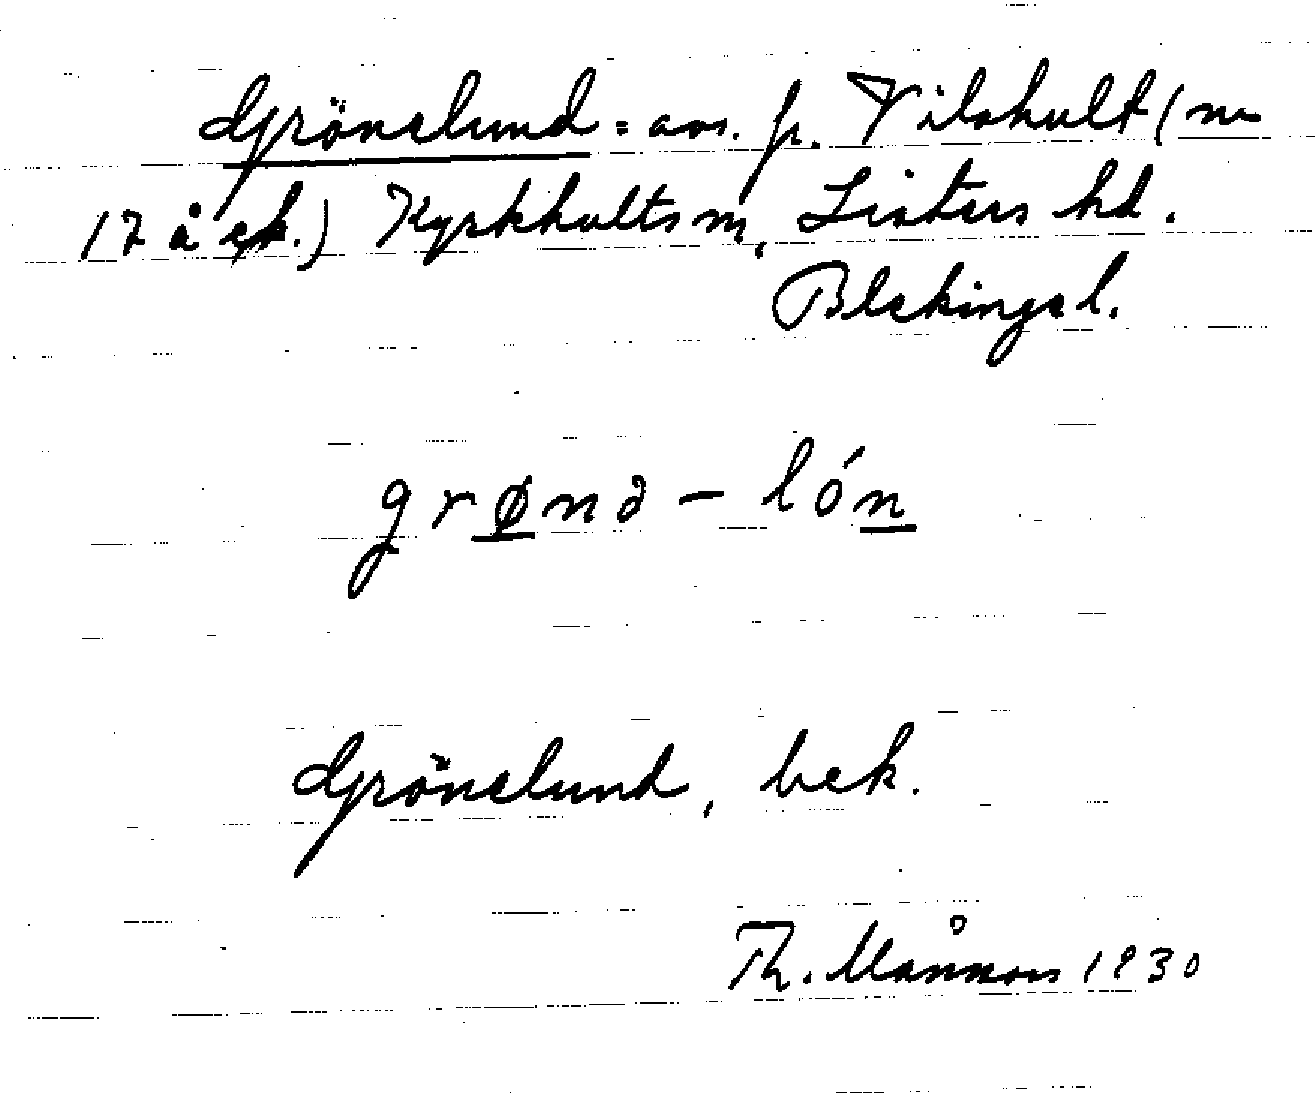 Grönelund = avs. fr. Vilshult (nr
17 å ek.) Kyrkhults sn, Listers hd.
Blekinge l.
grønə – lón
Grönelund, bek.
Th. Månsson 1930